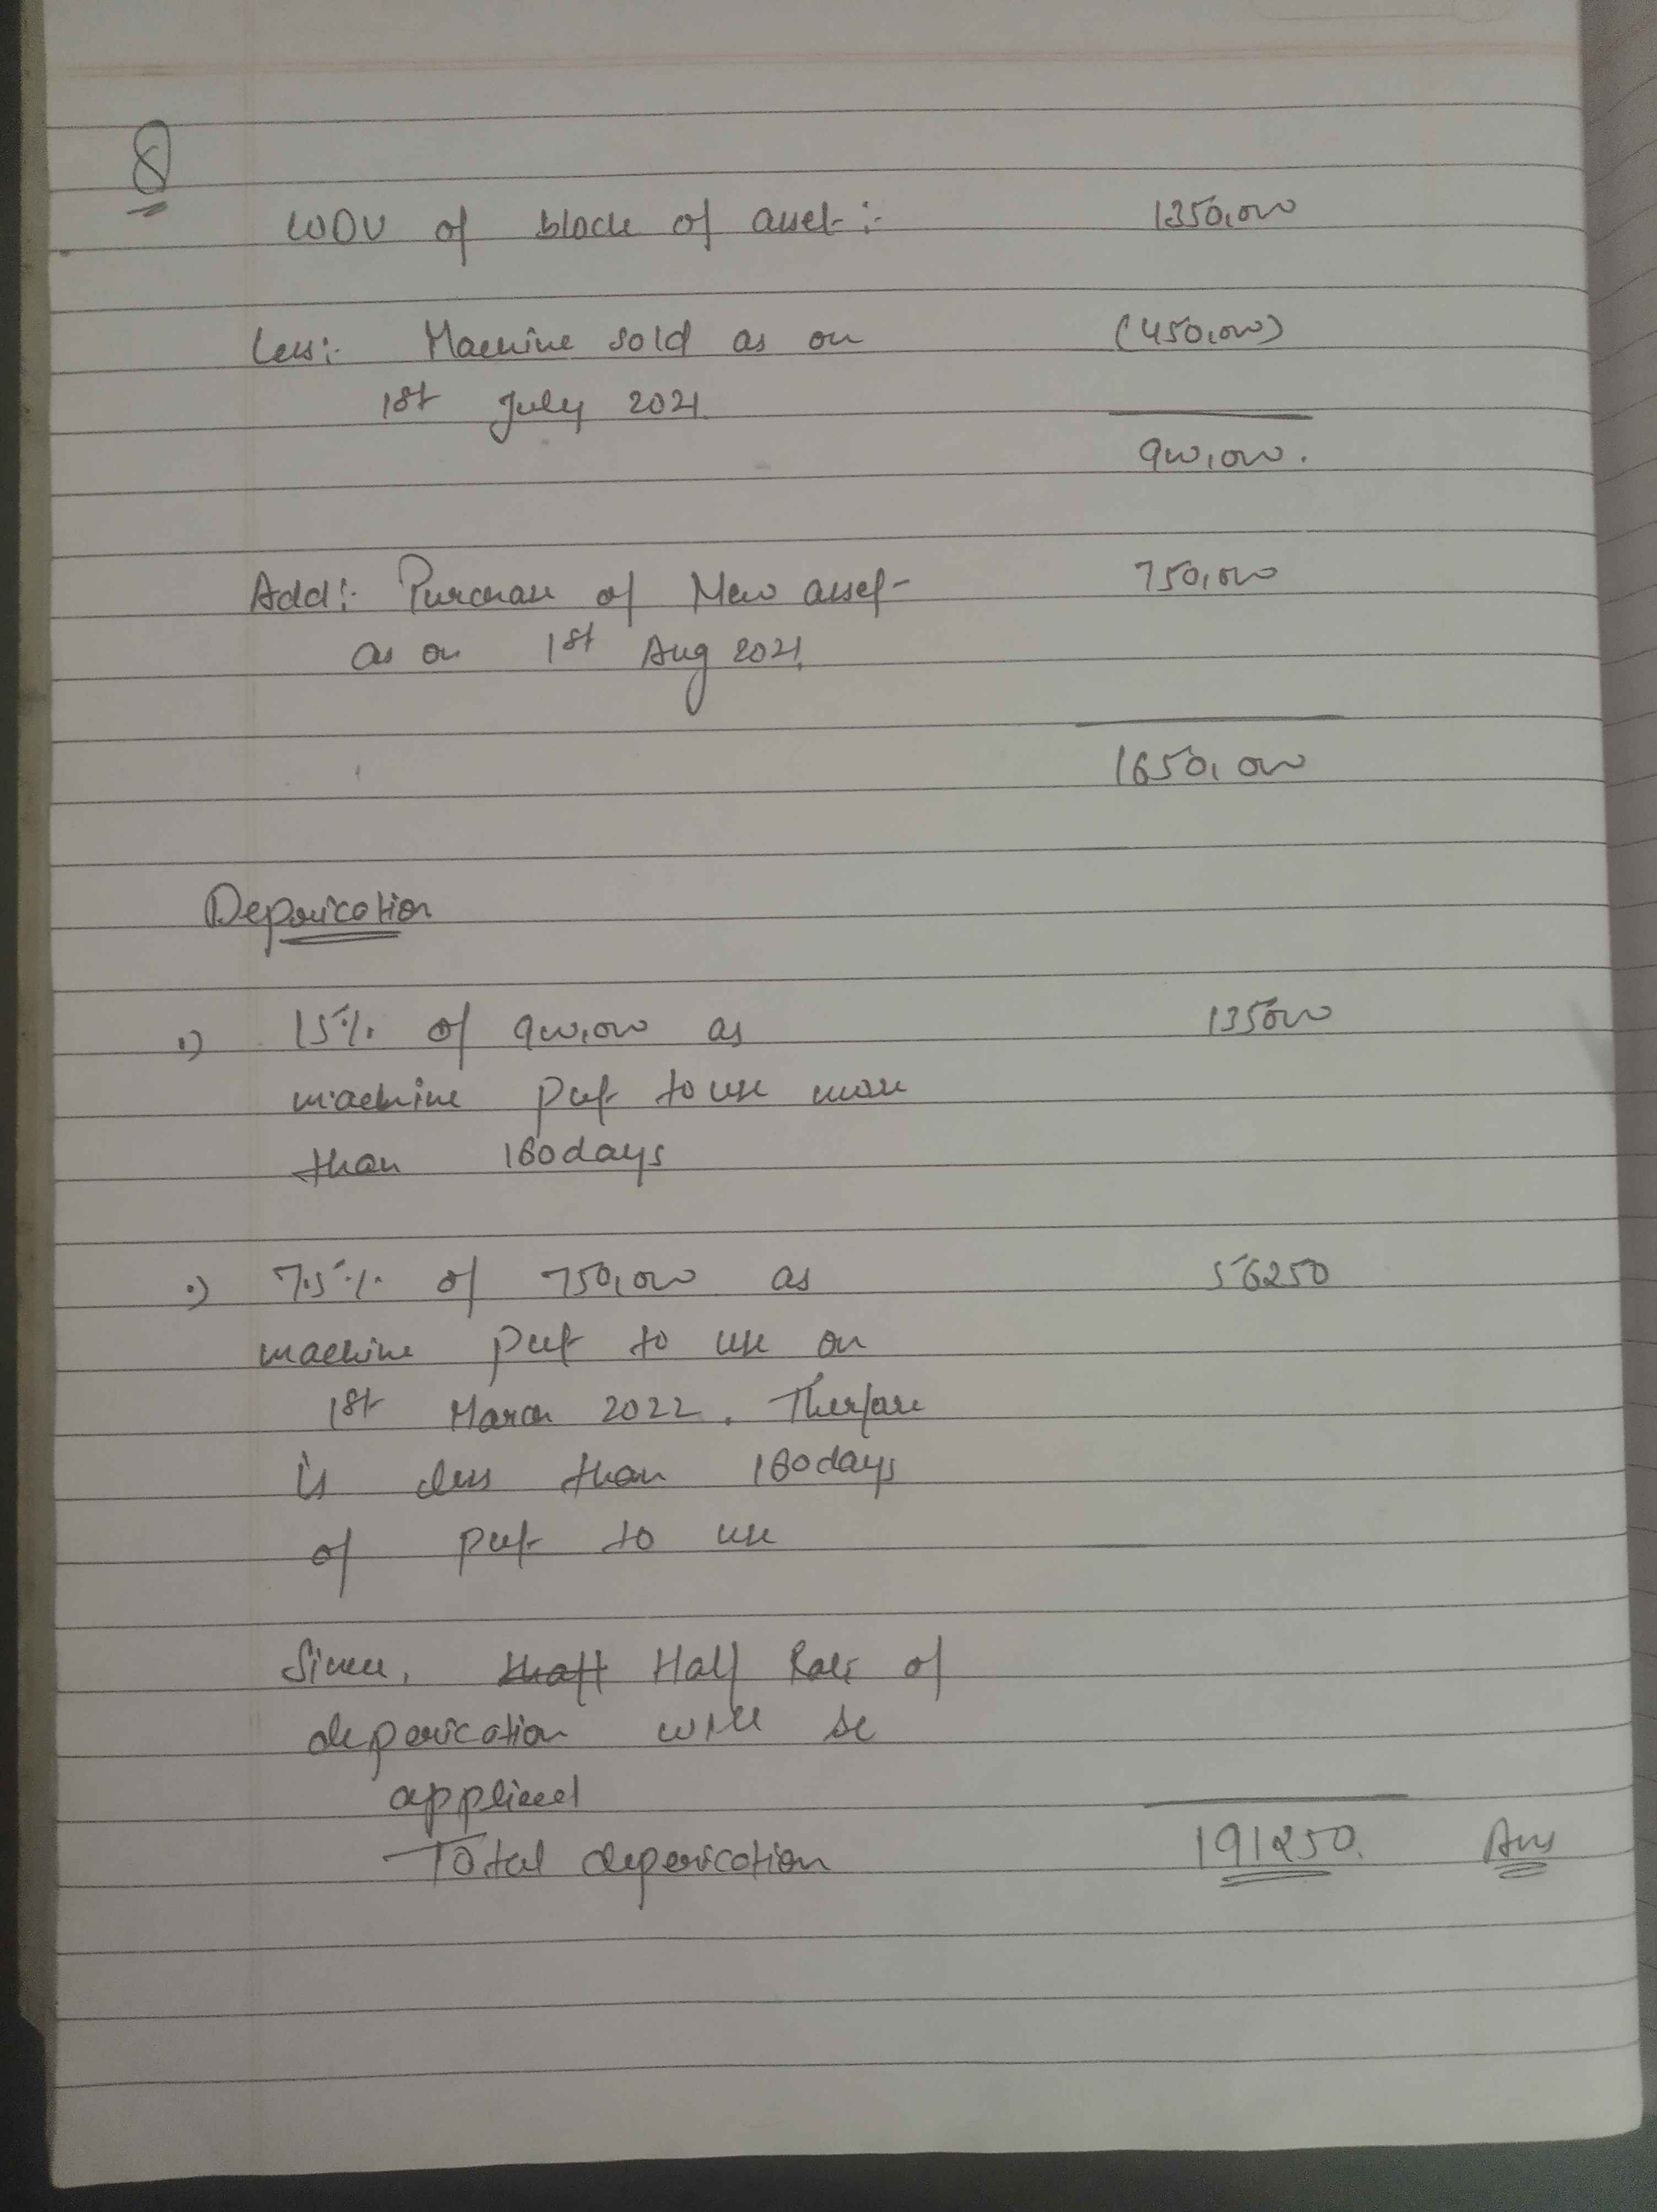 8
WDV of block of asset :- 1350,000
Less:- Machine sold as on (450,000)
1st July 2021
900,000.
Add:- Purchase of New asset 750,000
as on 1st Aug 2021
1650,000
Deperication
1) 15% of 900,000 as 135000
machine put to use more
than 180 days
2) 7.5% of 750,000 as 56250
machine put to use on
1st March 2022. Therfore
is less than 180 days
of put to use
Since, Half Rate of
deperication will be
applied
Total deperication 191250. Ans